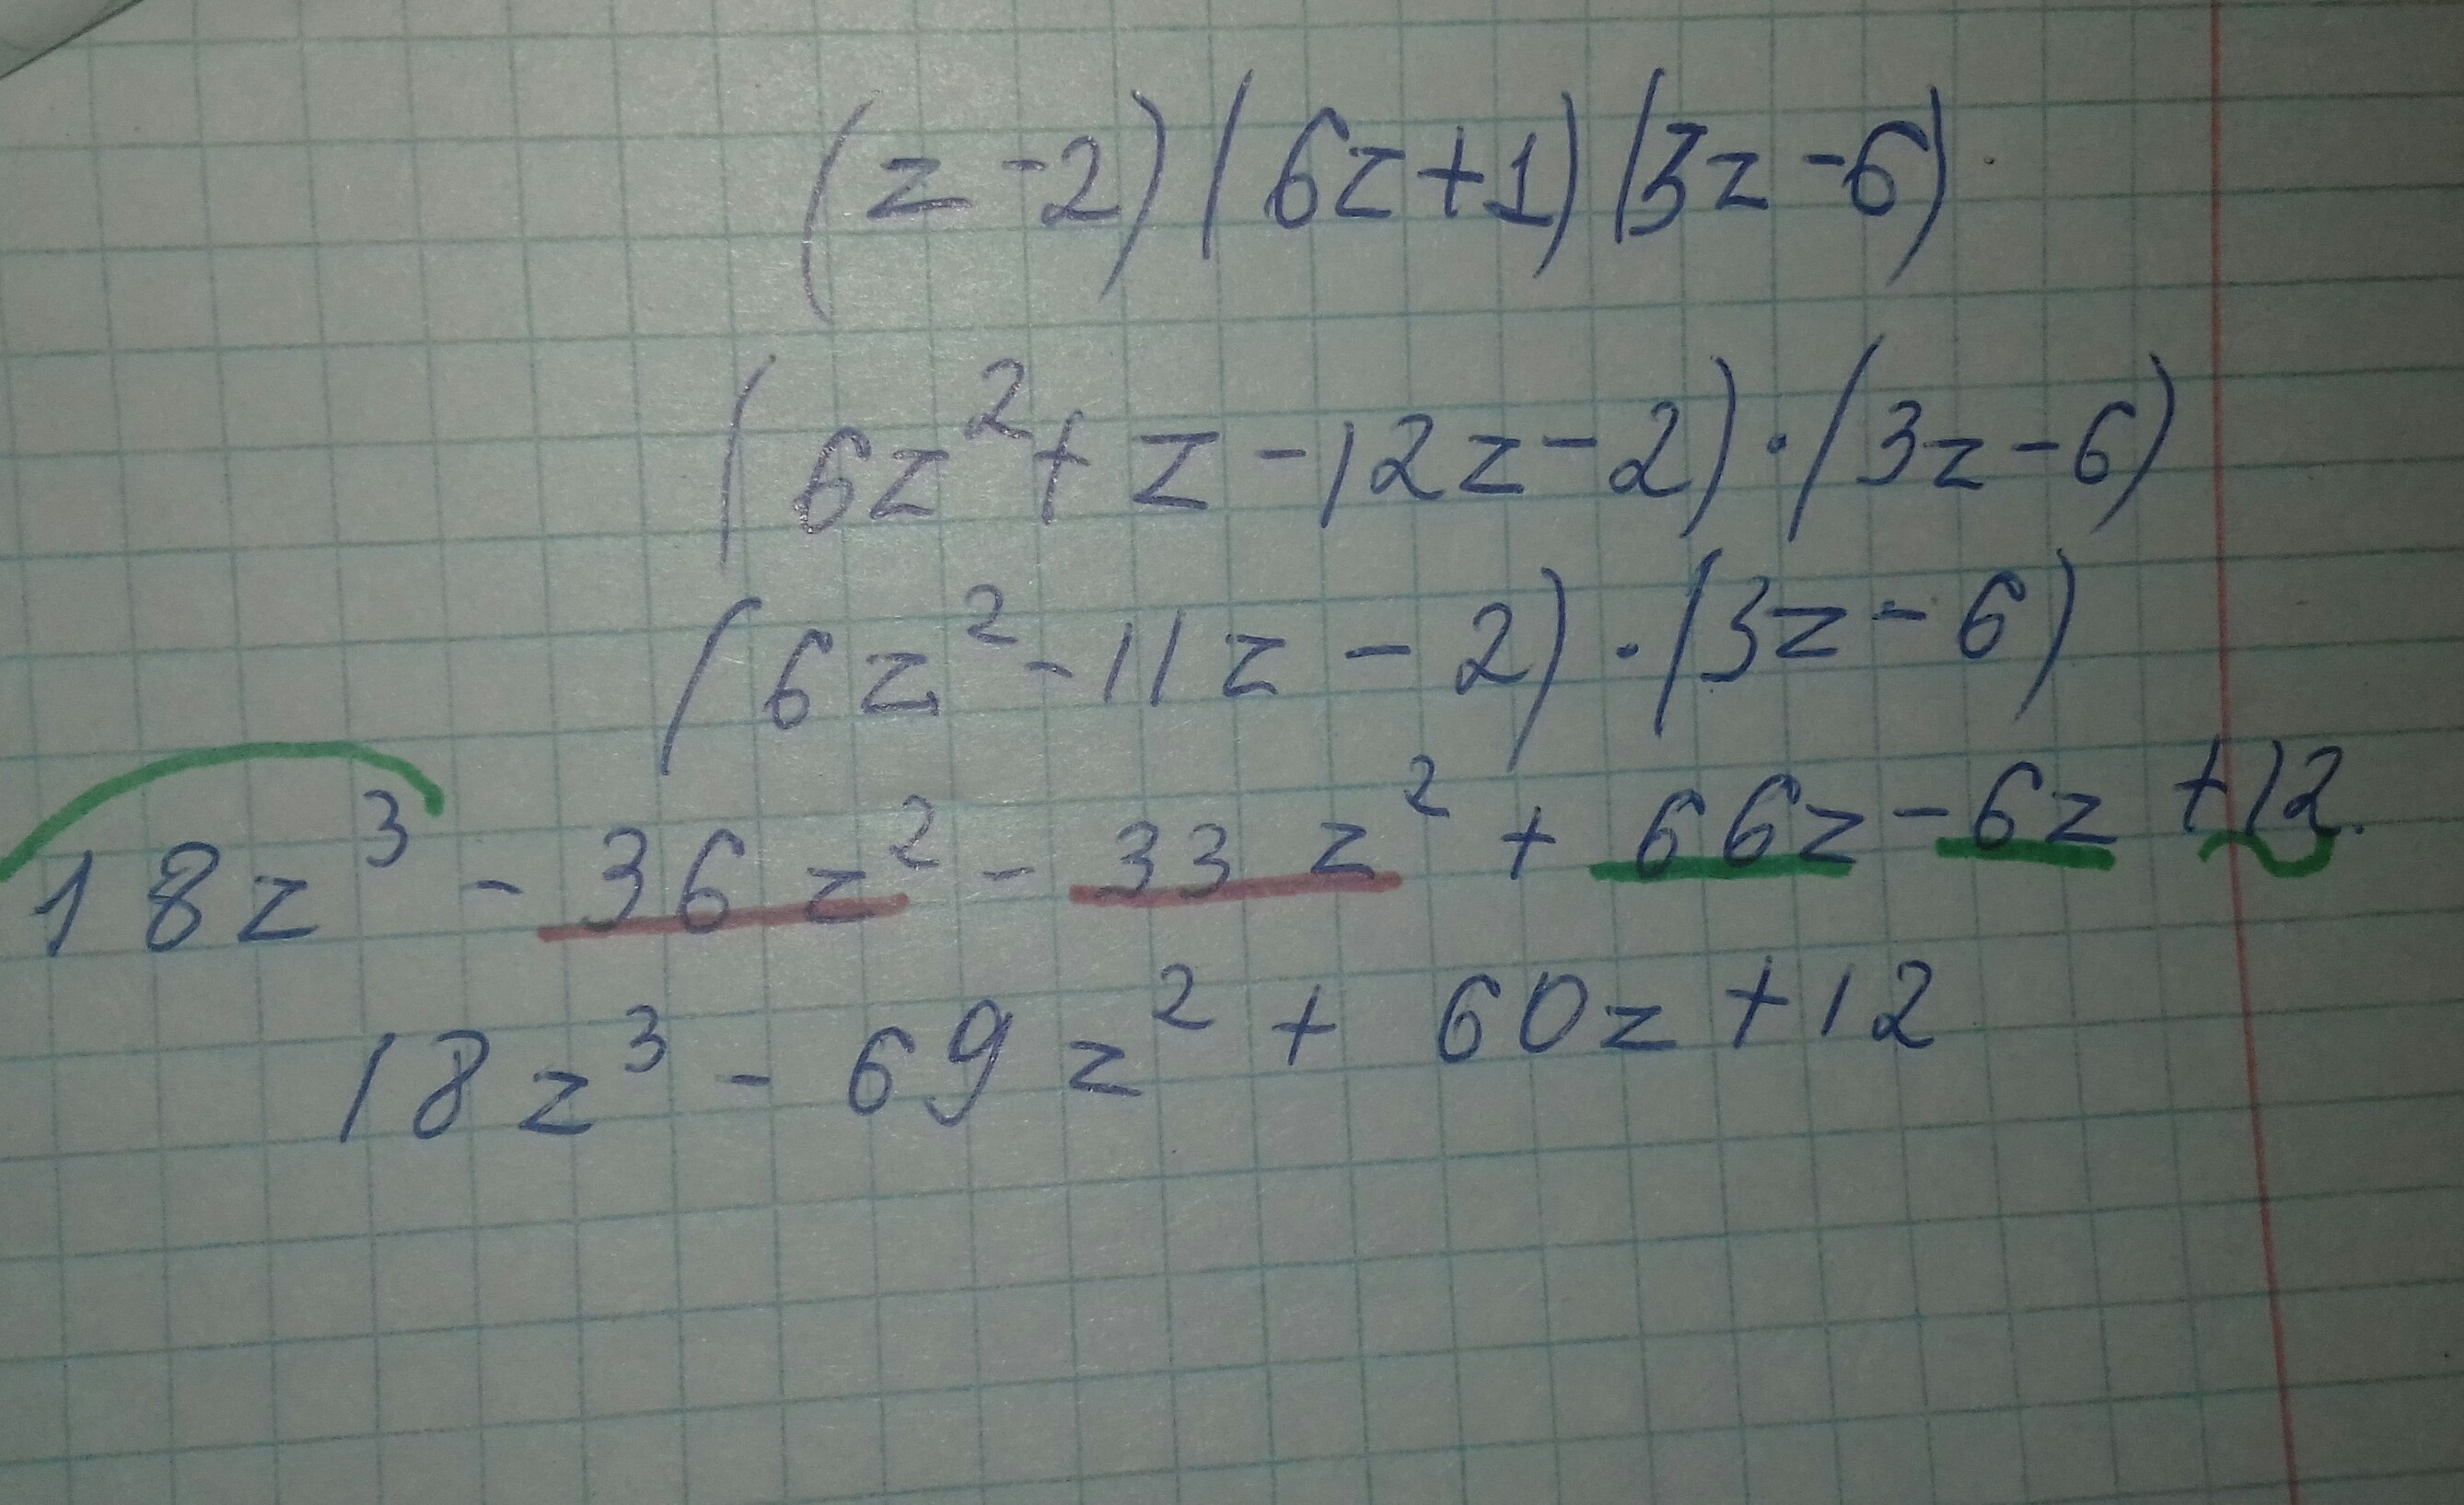 (z-2)(6z+1)(3z-6)
(6z²+z-12z-2)·(3z-6)
(6z²-11z-2)·(3z-6)
18z³-36z²-33z²+66z-6z+12.
18z³-69z²+60z+12